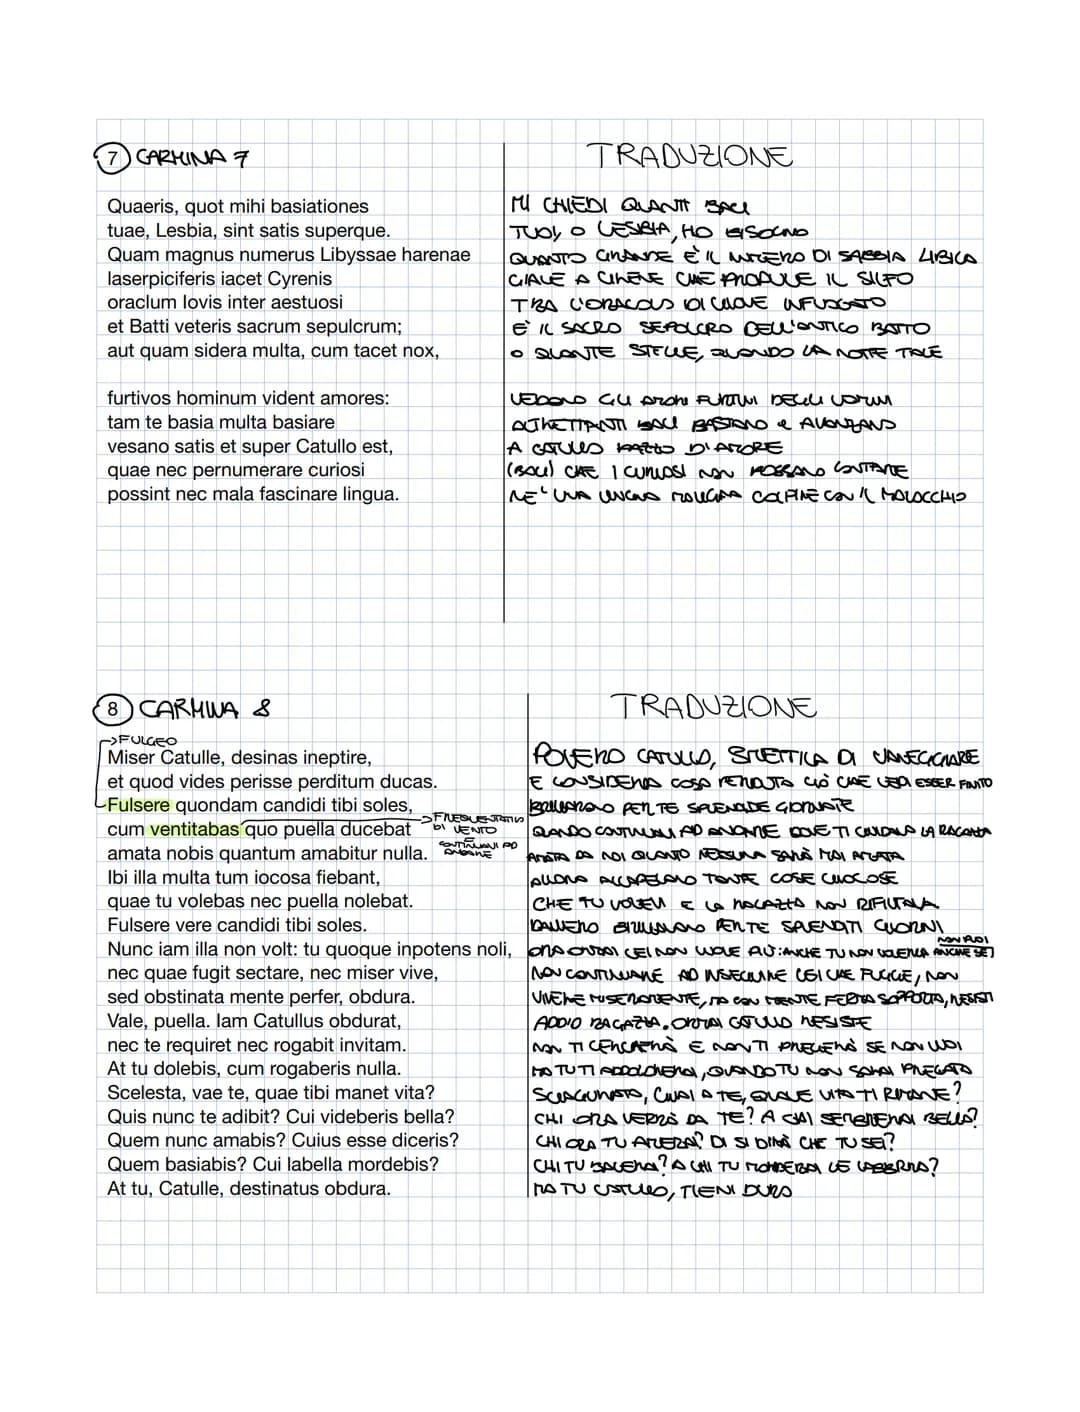 7 CARMINA 7
TRADUZIONE
Quaeris, quot mihi basiationes
tuae, Lesbia, sint satis superque.
Quam magnus numerus Libyssae harenae
laserpiciferis iacet Cyrenis
oraclum Iovis inter aestuosi
et Batti veteris sacrum sepulcrum;
aut quam sidera multa, cum tacet nox,
furtivos hominum vident amores:
tam te basia multa basiare
vesano satis et super Catullo est,
quae nec pernumerare curiosi
possint nec mala fascinare lingua.
MI CHIEDI QUANTI BACI
TUOI, O LESBIA, HO BISOGNO
QUANTO GRANDE È IL NUMERO DI SABBIA LIBICA
GIACE A CIRENE CHE PRODUCE IL SILFO
TRA L'ORACOLO DI GIOVE INFUOCATO
E IL SACRO SEPOLCRO DELL'ANTICO BATTO
O QUANTE STELLE, QUANDO LA NOTTE TACE
VEDONO GLI AMORI FURTIVI DEGLI UOMINI
ALTRETTANTI BACI BASTANO E AVANZANO
A CATULLO PAZZO D'AMORE
(BACI) CHE I CURIOSI NON POSSANO CONTARE
NE' UNA LINGUA MALIGNA COLPIRE CON IL MALOCCHIO
8 CARMINA 8
TRADUZIONE
FULGEO
Miser Catulle, desinas ineptire,
et quod vides perisse perditum ducas.
Fulsere quondam candidi tibi soles,
cum ventitabas quo puella ducebat
FREQUENTATIVO
DI VENTO
E
CONTINUAVI AD
ANDARE
amata nobis quantum amabitur nulla.
Ibi illa multa tum iocosa fiebant,
quae tu volebas nec puella nolebat.
Fulsere vere candidi tibi soles.
Nunc iam illa non volt: tu quoque inpotens noli,
nec quae fugit sectare, nec miser vive,
sed obstinata mente perfer, obdura.
Vale, puella. Iam Catullus obdurat,
nec te requiret nec rogabit invitam.
At tu dolebis, cum rogaberis nulla.
Scelesta, vae te, quae tibi manet vita?
Quis nunc te adibit? Cui videberis bella?
Quem nunc amabis? Cuius esse diceris?
Quem basiabis? Cui labella mordebis?
At tu, Catulle, destinatus obdura.
POVERO CATULLO, SMETTILA DI VANEGGIARE
E CONSIDERA COSA PERDUTA CIÒ CHE VEDI ESSER FINITO
BRILLARONO PER TE SPLENDIDE GIORNATE
QUANDO CONTINUAVI AD ANDARE DOVE TI GUIDAVA LA RAGAZZA
AMATA DA NOI QUANTO NESSUNA SARÀ MAI AMATA
ALLORA ACCADEVANO TANTE COSE GIOCOSE
CHE TU VOLEVI E LA RAGAZZA NON RIFIUTAVA
DAVVERO BRILLARONO PER TE SPLENDIDI GIORNI
ORA ORMAI LEI NON VUOLE PIÙ: ANCHE TU NON VOLERLA ANCHE SE
NON PUOI
NON CONTINUARE AD INSEGUIRE LEI CHE FUGGE, NON
VIVERE MISERAMENTE, MA CON MENTE FERMA SOPPORTA, RESISTI
ADDIO RAGAZZA. ORMAI CATULLO RESISTE
NON TI CERCHERÀ E NON TI PREGHERÀ SE NON VUOI
MA TU TI ADDOLORERAI, QUANDO TU NON SARAI PREGATA
SCIAGURATA, GUAI A TE, QUALE VITA TI RIMANE?
CHI ORA VERRÀ DA TE? A CHI SEMBRERAI BELLA?
CHI ORA TU AMERAI? DI CHI SI DIRÀ CHE TU SEI?
CHI TU BACERAI? A CHI TU MORDERAI LE LABBRA?
MA TU CATULLO, TIENI DURO